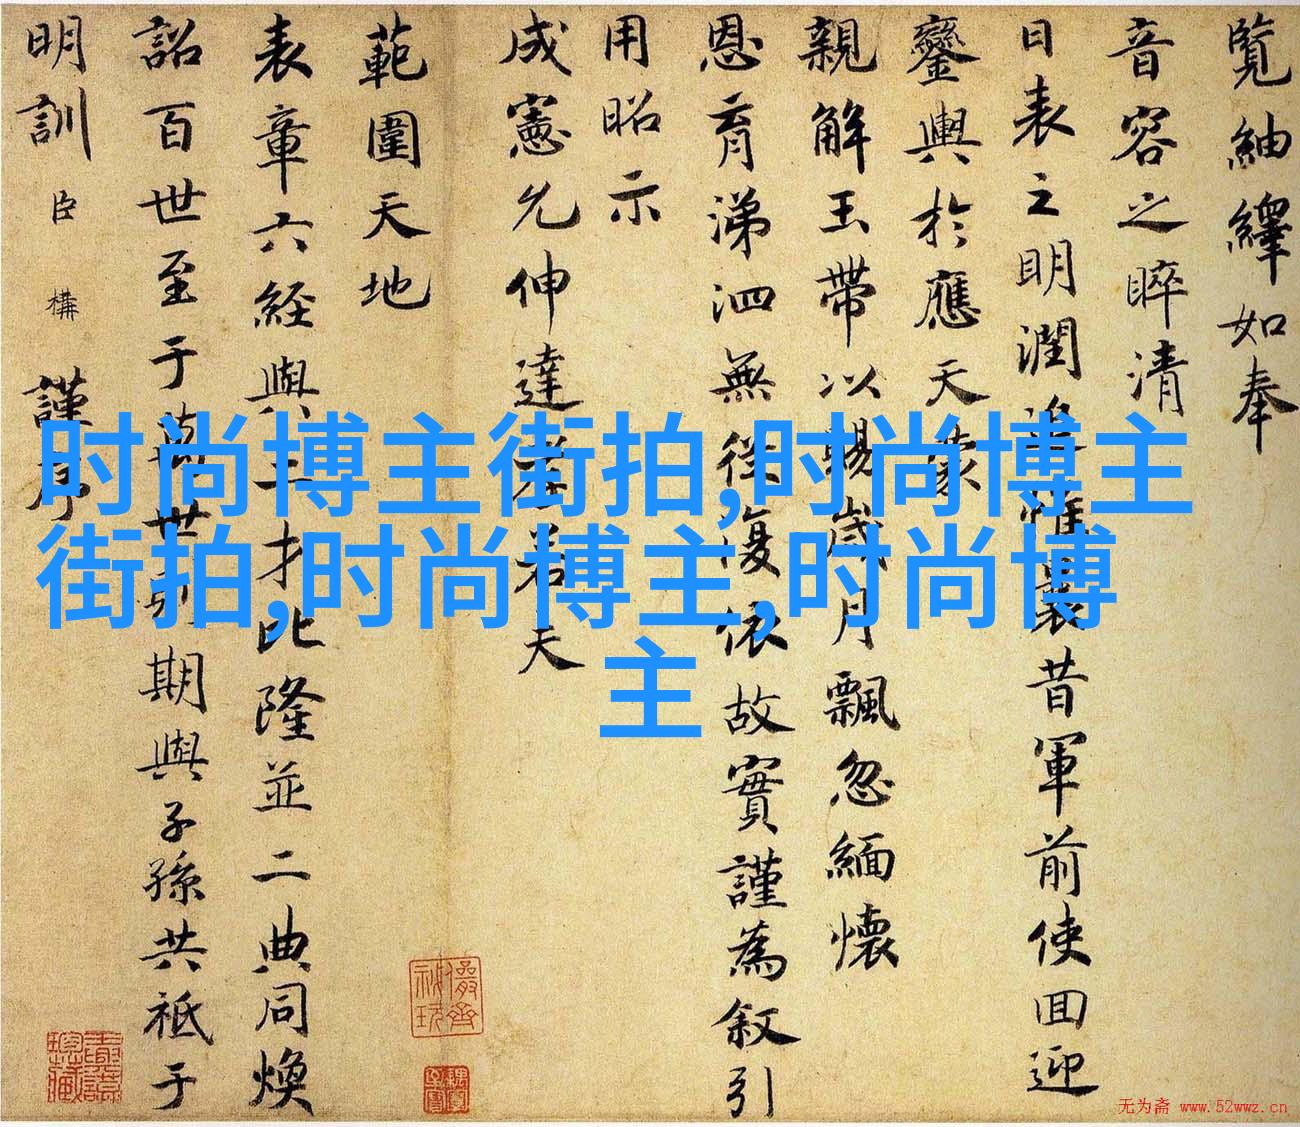 覽紬繹如奉
音容之睟清
日表之明潤
昔軍前使回迎
鑾輿於應天
親解玉帶以賜
歲月飄忽緬懷
恩育涕泗無從
復依故實謹為叙引
用昭示
成憲允伸達孝若天
範圍天地
表章六経與三才比隆並二典同煥
詔百世至于萬世
期與子孫共祗于
明訓臣構謹序
时尚博主街拍,时尚博主
街拍,时尚博主,时尚博
主
无为斋 www.52wwz.cn